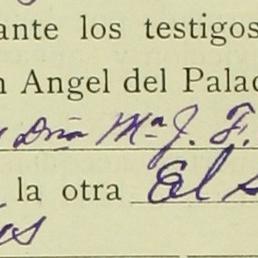 ante los testigos
n Angel del Palac
Dña Mª J. F.
la otra El s